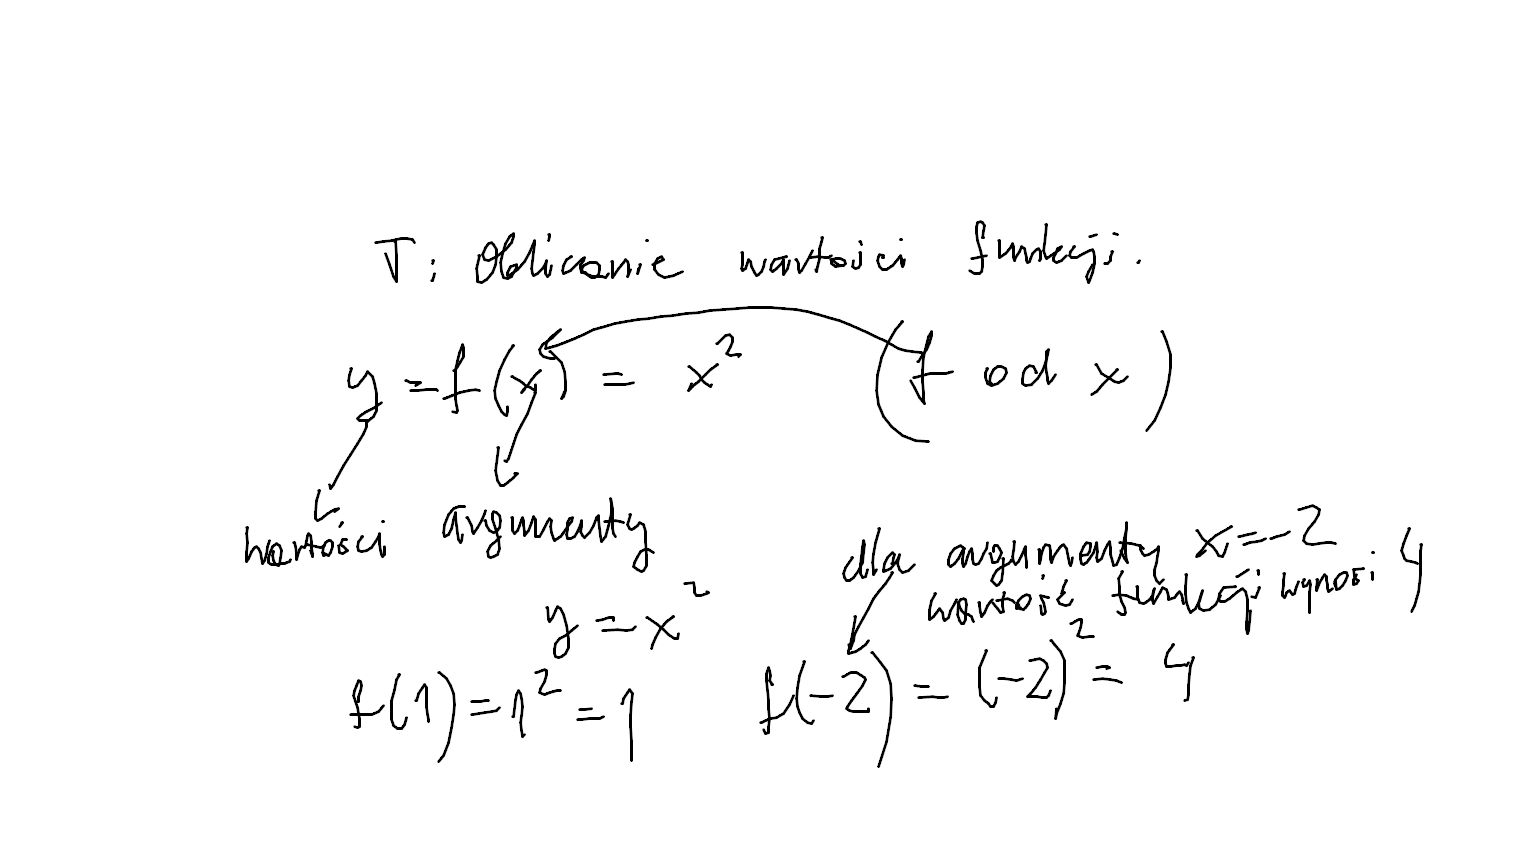 T: Obliczanie wartości funkcji.
y = f(x) = x² (f od x)
wartości argumenty
dla argumenty x=-2
wartość funkcji wynosi 4
y = x²
f(1) = 1² = 1 f(-2) = (-2)² = 4